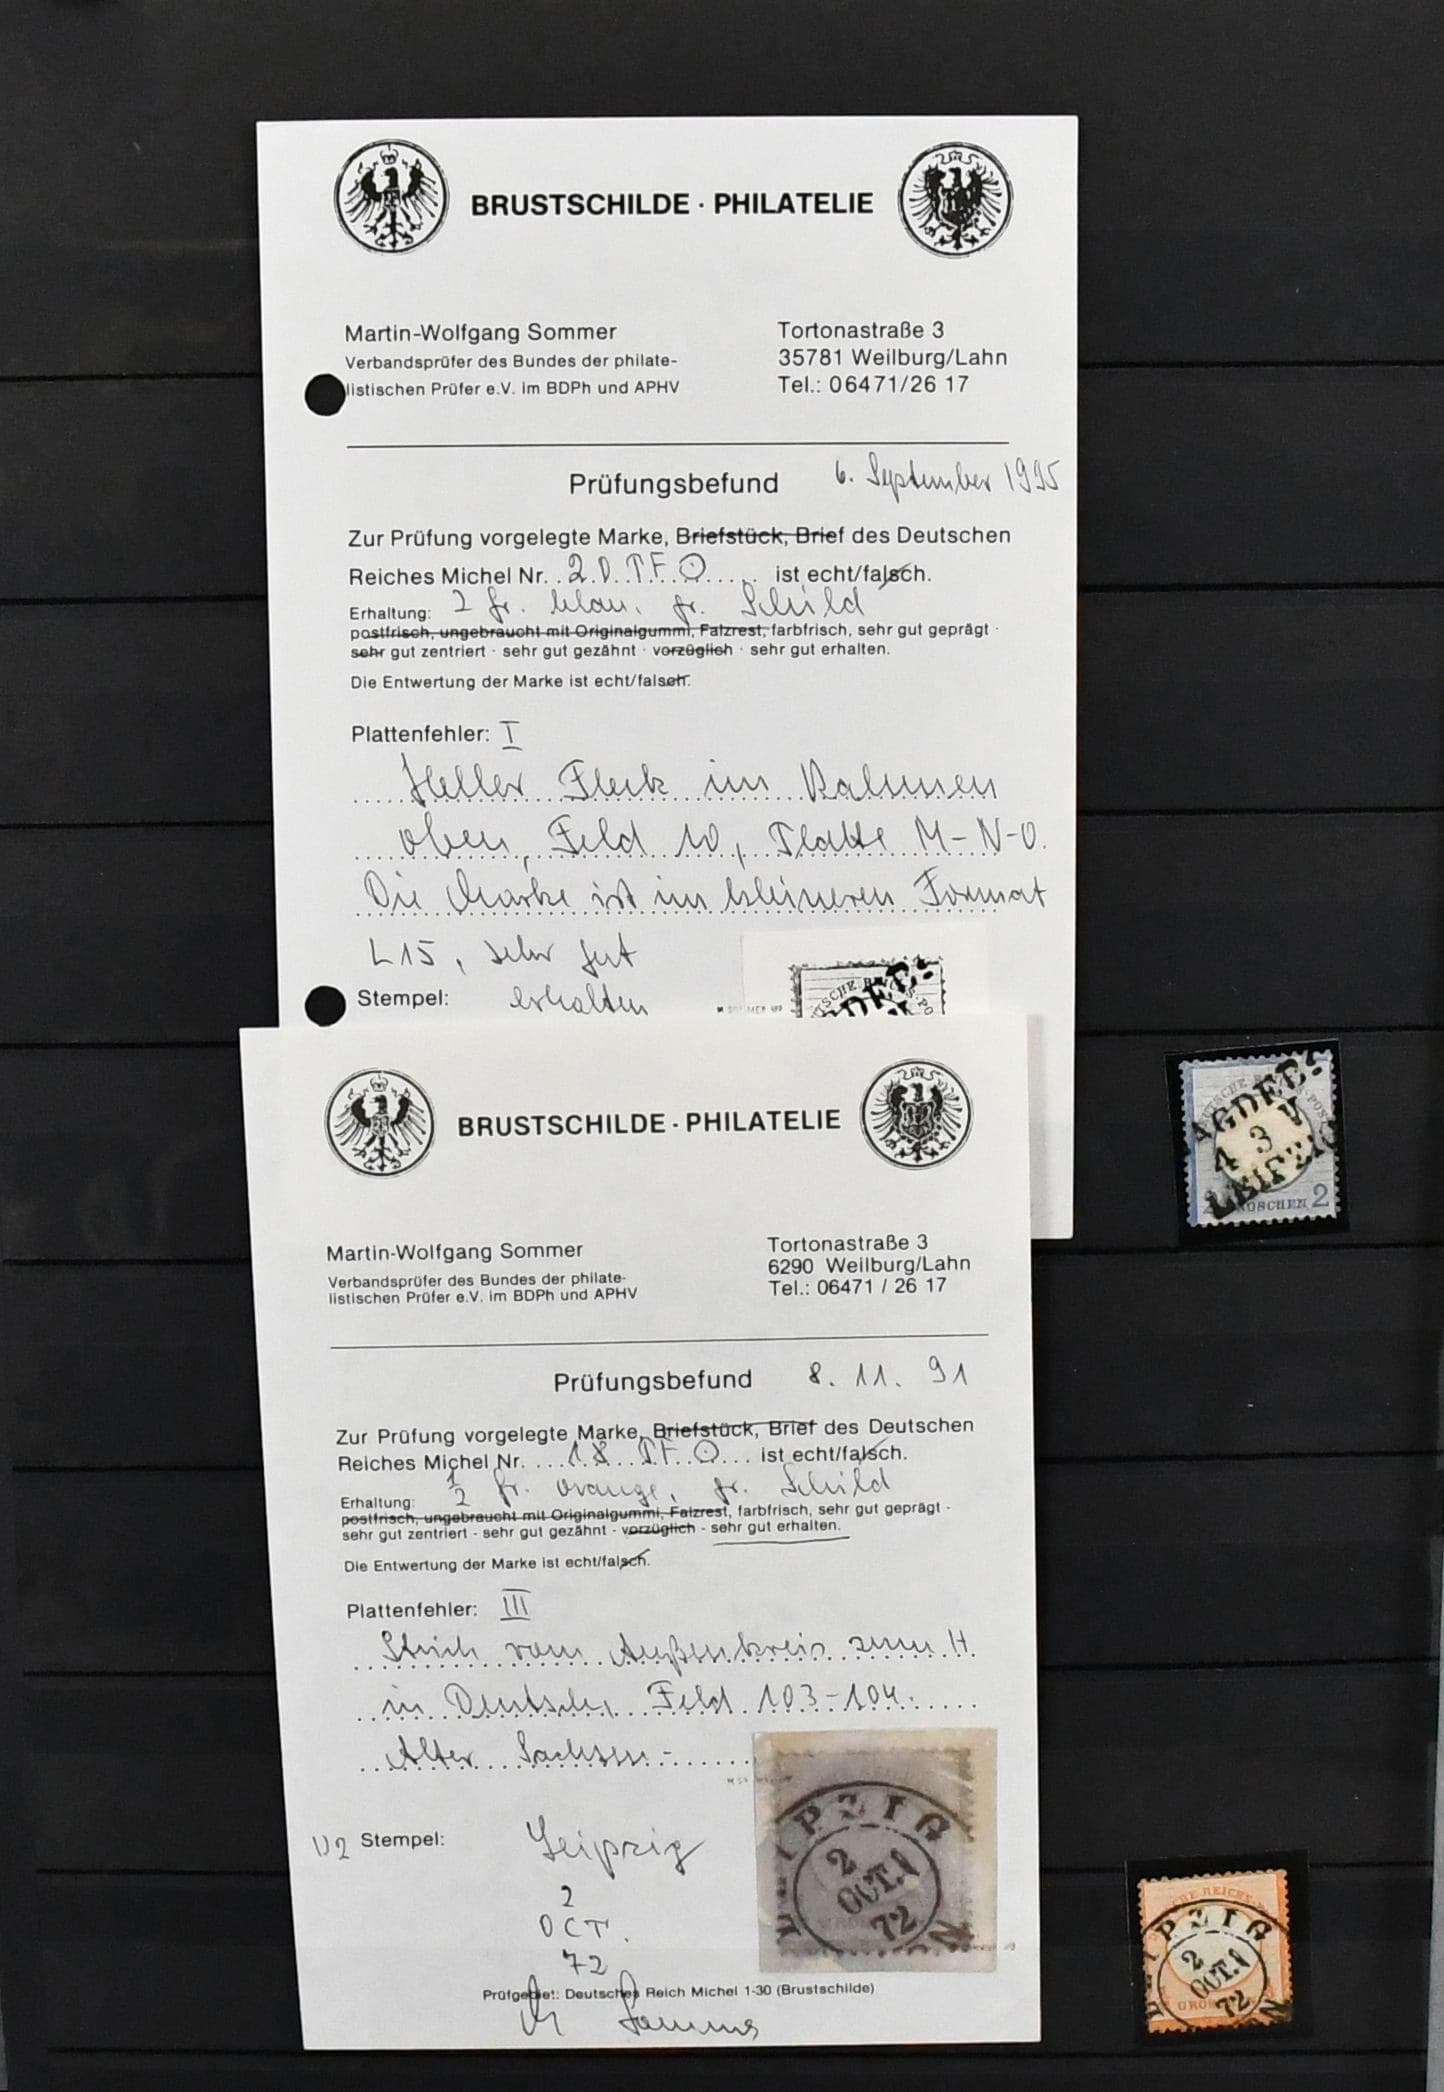 BRUSTSCHILDE · PHILATELIE
Martin-Wolfgang Sommer
Verbandsprüfer des Bundes der philate-
listischen Prüfer e.V. im BDPh und APHV
Tortonastraße 3
35781 Weilburg/Lahn
Tel.: 06471/26 17
Prüfungsbefund 6. September 1995
Zur Prüfung vorgelegte Marke, Briefstück, Brief des Deutschen
Reiches Michel Nr. 20 PF ⊙ ist echt/falsch.
Erhaltung: 2 Gr. blau, gr. Schild
postfrisch, ungebraucht mit Originalgummi, Falzrest, farbfrisch, sehr gut geprägt ·
sehr gut zentriert · sehr gut gezähnt · vorzüglich · sehr gut erhalten.
Die Entwertung der Marke ist echt/falsch.
Plattenfehler: I
Heller Fleck im Rahmen
oben, Feld 10, Platte M-N-O.
Die Marke ist im kleineren Format
L15, sehr gut
Stempel: erhalten
BRUSTSCHILDE - PHILATELIE
Martin-Wolfgang Sommer
Verbandsprüfer des Bundes der philate-
listischen Prüfer e.V. im BDPh und APHV
Tortonastraße 3
6290 Weilburg/Lahn
Tel.: 06471 / 26 17
Prüfungsbefund 8. 11. 91
Zur Prüfung vorgelegte Marke, Briefstück, Brief des Deutschen
Reiches Michel Nr. 18 PF ⊙ ist echt/falsch.
Erhaltung: 1/2 Gr. orange, gr. Schild
postfrisch, ungebraucht mit Originalgummi, Falzrest, farbfrisch, sehr gut geprägt -
sehr gut zentriert - sehr gut gezähnt - vorzüglich - sehr gut erhalten.
Die Entwertung der Marke ist echt/falsch.
Plattenfehler: III
Strich vom Außenkreis zum H
in Deutsche, Feld 103-104.
Alter Sachsen-
Stempel: Leipzig
2
OCT.
72
LEIPZIG
2
OCT.
72
Prüfgebiet: Deutsches Reich Michel 1-30 (Brustschilde)
Sommer
AGDEB:
4 3
LEIPZIG
GROSCHEN 2
LEIPZIG
2
OCT.
72